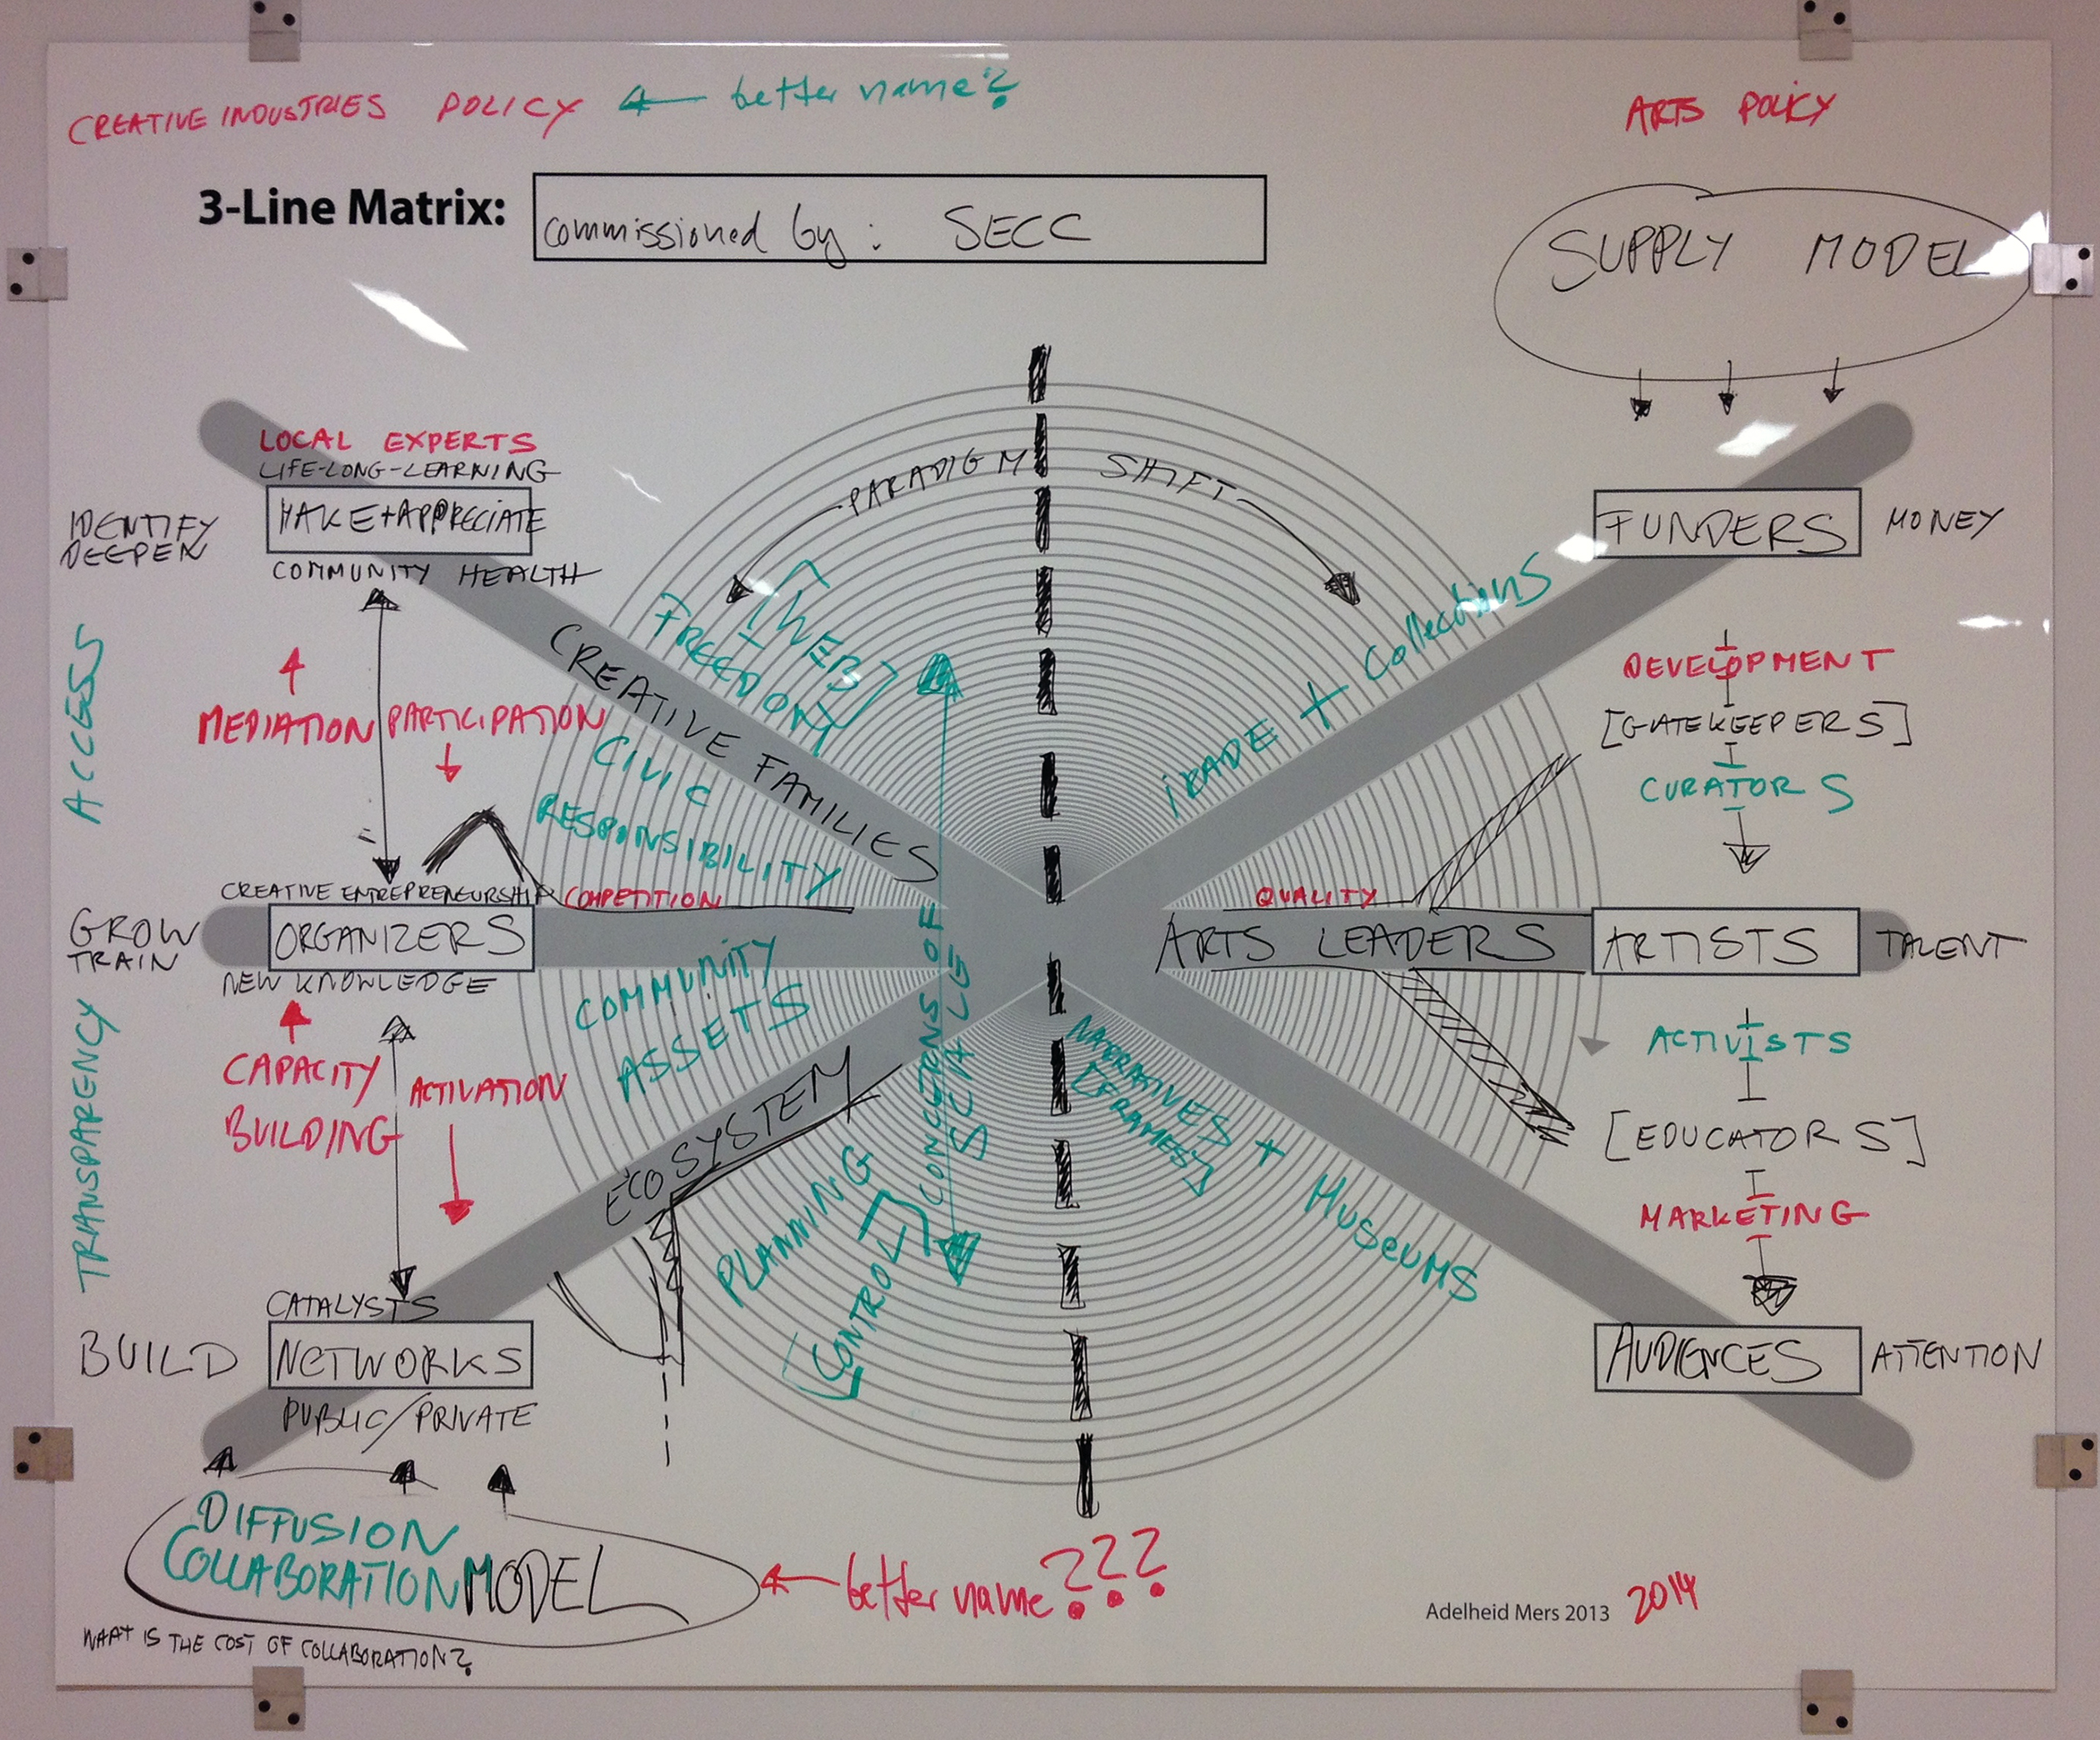 CREATIVE INDUSTRIES POLICY ← better name?
ARTS POLICY
3-Line Matrix:
commissioned by: SECC
SUPPLY MODEL
PARADIGM SHIFT
LOCAL EXPERTS
LIFE-LONG-LEARNING
IDENTIFY
DEEPEN
MAKE+APPRECIATE
COMMUNITY HEALTH
FUNDERS
MONEY
ACCESS
MEDIATION
PARTICIPATION
[WEB]
FREEDOM
CREATIVE FAMILIES
CIVIC
RESPONSIBILITY
TRADE + Collections
DEVELOPMENT
[GATEKEEPERS]
CURATORS
CREATIVE ENTREPRENEURSHIP
COMPETITION
GROW
TRAIN
ORGANIZERS
NEW KNOWLEDGE
QUALITY
ARTS LEADERS
ARTISTS
TALENT
TRANSPARENCY
CAPACITY
BUILDING
ACTIVATION
COMMUNITY
ASSETS
CONCERNS OF
SCALE
ECOSYSTEM
PLANNING
[CONTROL]
NARRATIVES + MUSEUMS
[FRAMES]
ACTIVISTS
[EDUCATORS]
MARKETING
CATALYSTS
BUILD
NETWORKS
PUBLIC/PRIVATE
AUDIENCES
ATTENTION
DIFFUSION
COLLABORATION MODEL
← better name???
WHAT IS THE COST OF COLLABORATION?
Adelheid Mers 2013 2014